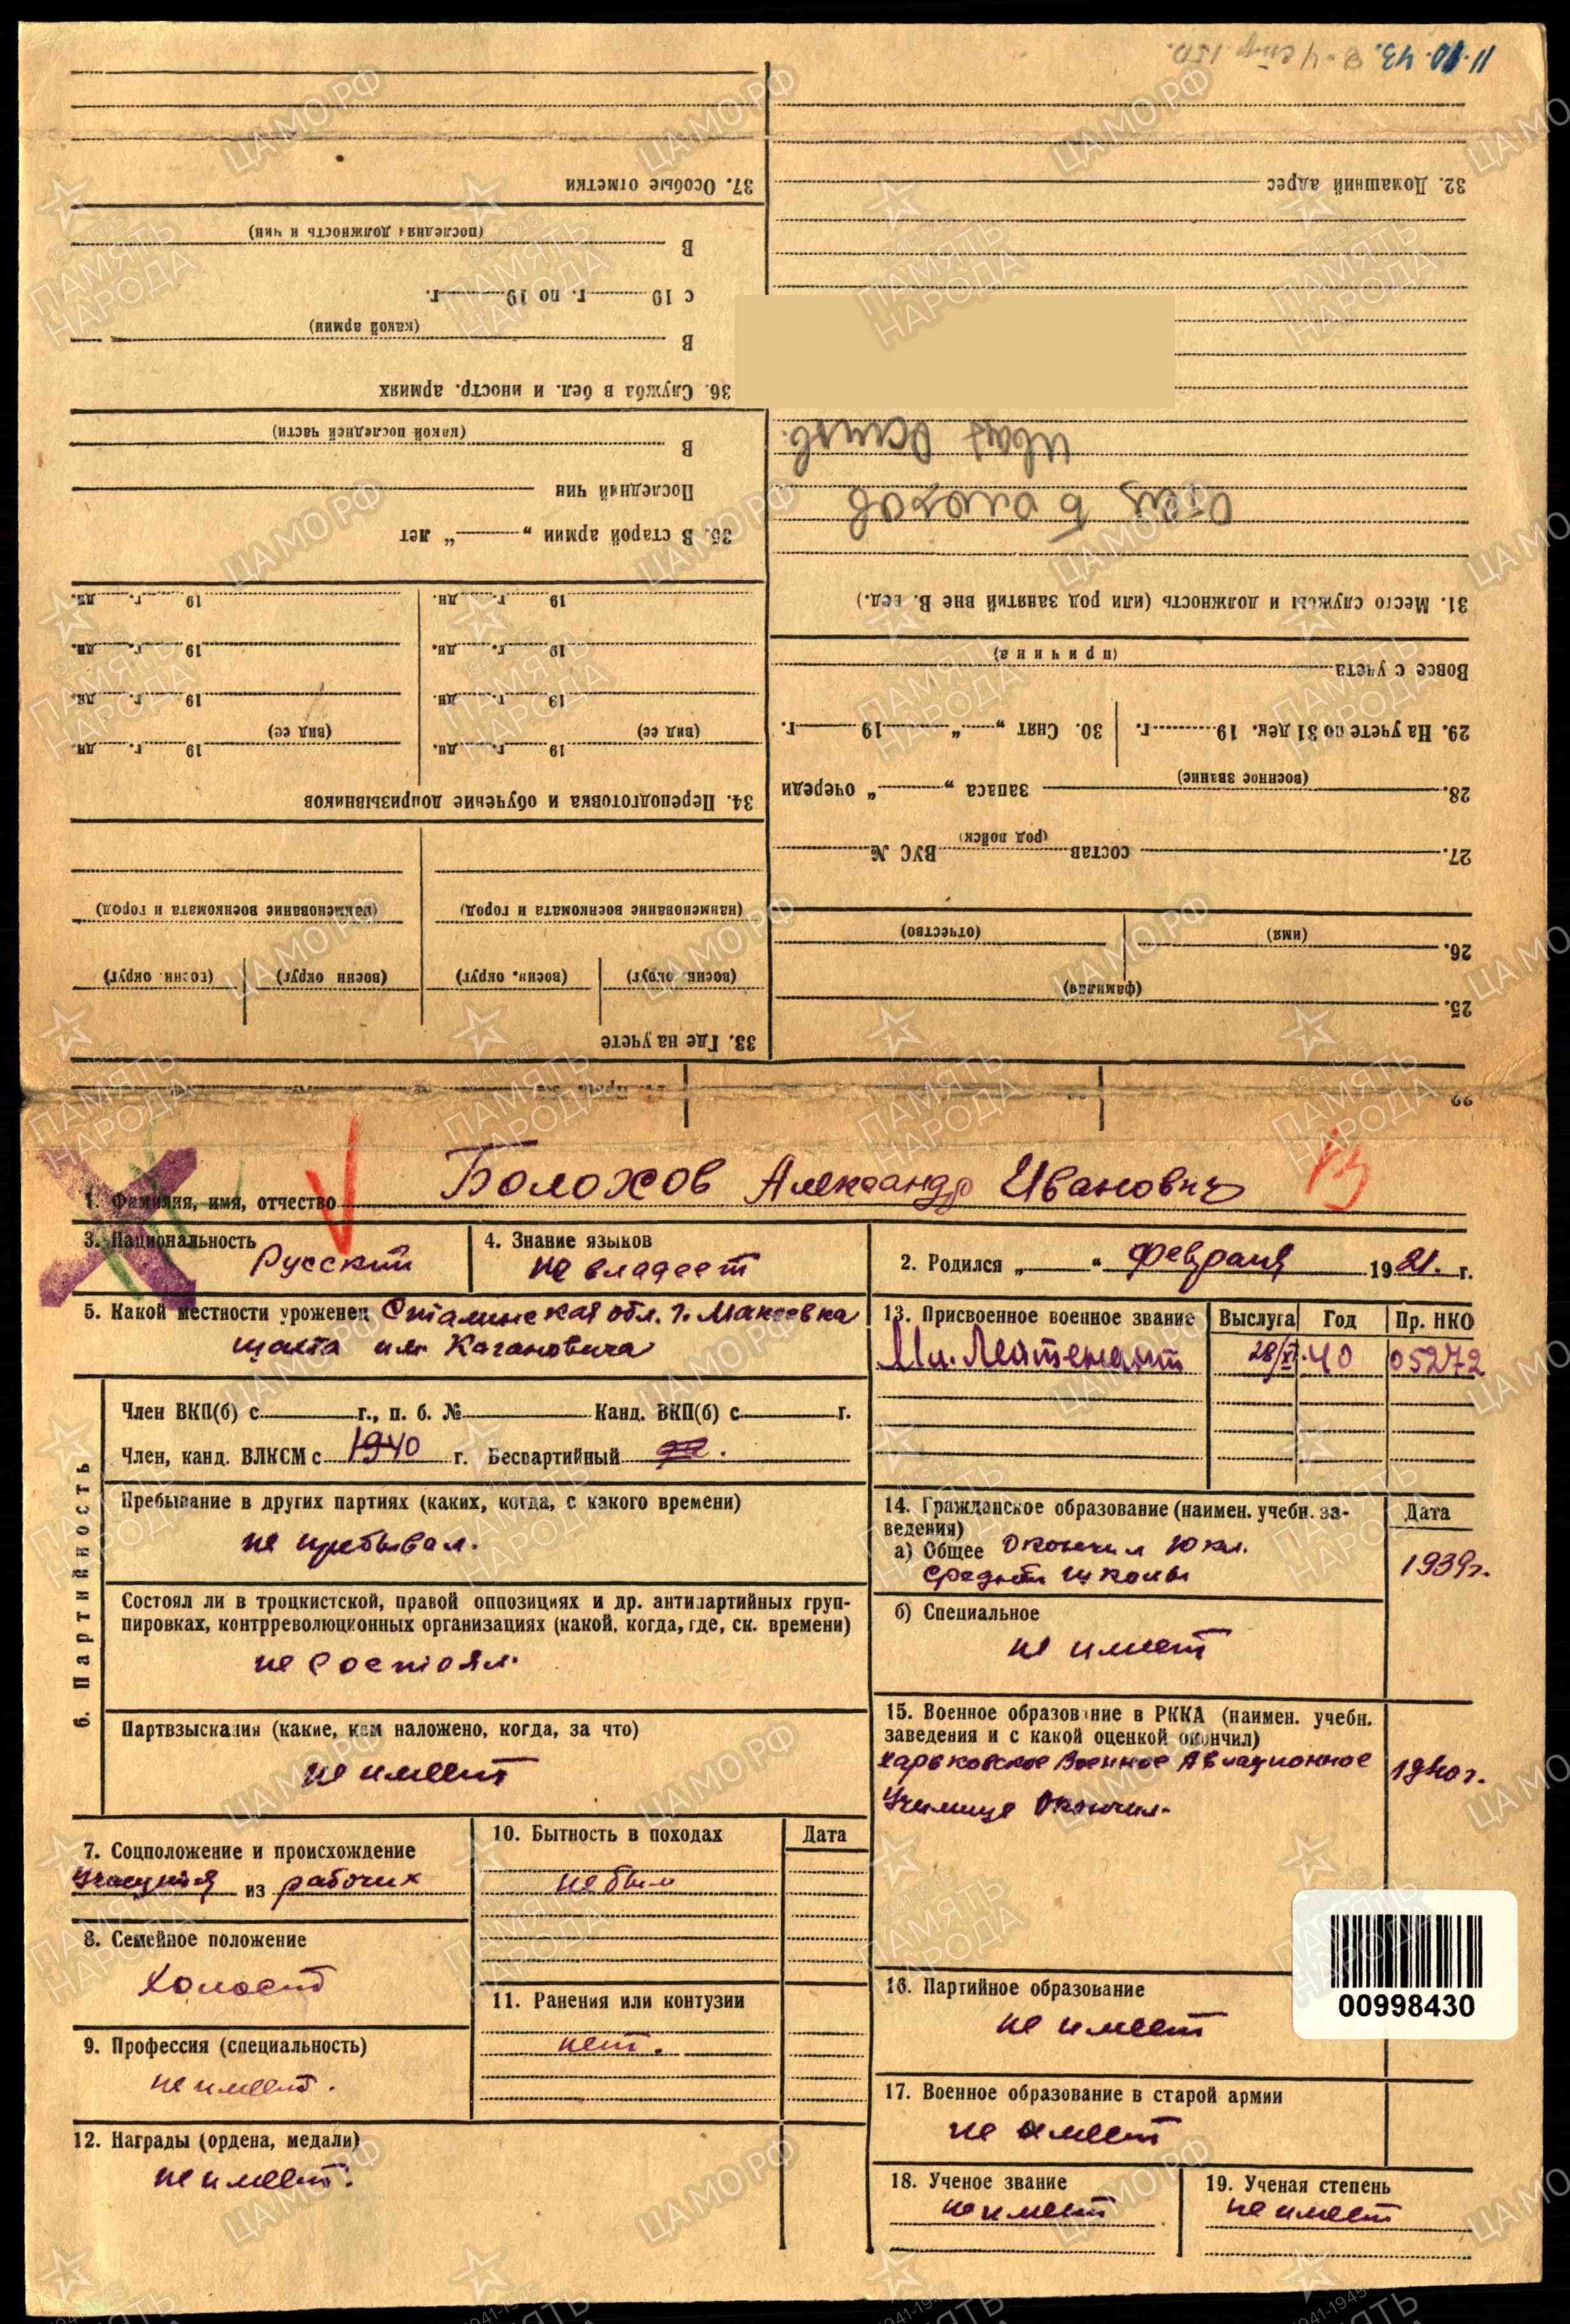 11.10.43. В-4 стр. 150.
32. Домашний адрес
Отец Болохов
Иван Осипов.
31. Место службы и должность (или род занятий вне В. вед.)
Вовсе с учета
(причина)
29. На учете по 31 дек. 19 г.
30. Снят „ “ 19 г.
28. (военное звание) запаса „ “ очереди
27. состав (род войск) ВУС №
26. (имя) (отчество)
25. (фамилия)
37. Особые отметки
(последняя должность и чин)
В
с 19 г. по 19 г.
(какой армии)
В
36. Служба в бел. и иностр. армиях
(какой последней части)
В
Последний чин
35. В старой армии „ “ лет
19 г. дн. 19 г. дн.
19 г. дн. 19 г. дн.
19 г. дн. 19 г. дн.
(вид сс) 19 г. дн. (вид сс) 19 г. дн.
34. Переподготовка и обучение допризывников
(наименование военкомата и город) (наименование военкомата и город)
(военн. округ) (военн. округ) (военн. округ) (военн. округ)
33. Где на учете
1. Фамилия, имя, отчество Болохов Александр Иванович
3. Национальность Русский
4. Знание языков
не владеет
2. Родился „ “ февраля 1921. г.
5. Какой местности уроженец Сталинская обл. г. Макеевка
шахта им. Кагановича
13. Присвоенное военное звание Выслуга Год Пр. НКО
Мл. Лейтенант 28/XI. 40 05272
6. Партийность
Член ВКП(б) с г., п. б. № Канд. ВКП(б) с г.
Член, канд. ВЛКСМ с 1940 г. Беспартийный да.
Пребывание в других партиях (каких, когда, с какого времени)
не пребывал.
Состоял ли в троцкистской, правой оппозициях и др. антипартийных груп-
пировках, контрреволюционных организациях (какой, когда, где, ск. времени)
не состоял.
Партвзыскания (какие, кем наложено, когда, за что)
не имеет
14. Гражданское образование (наимен. учебн. за-
ведения) Дата
а) Общее Окончил 10 кл.
средней школы 1939г.
б) Специальное
не имеет
15. Военное образование в РККА (наимен. учебн.
заведения и с какой оценкой окончил)
Харьковское Военное Авиационное 1940г.
Училище Окончил.
7. Соцположение и происхождение
Учащийся из рабочих
8. Семейное положение
Холост
9. Профессия (специальность)
не имеет.
10. Бытность в походах Дата
не был
11. Ранения или контузии
нет.
12. Награды (ордена, медали)
не имеет.
00998430
16. Партийное образование
не имеет
17. Военное образование в старой армии
не имеет
18. Ученое звание
не имеет
19. Ученая степень
не имеет
ЦАМО РФ
ПАМЯТЬ
НАРОДА
1941-1945